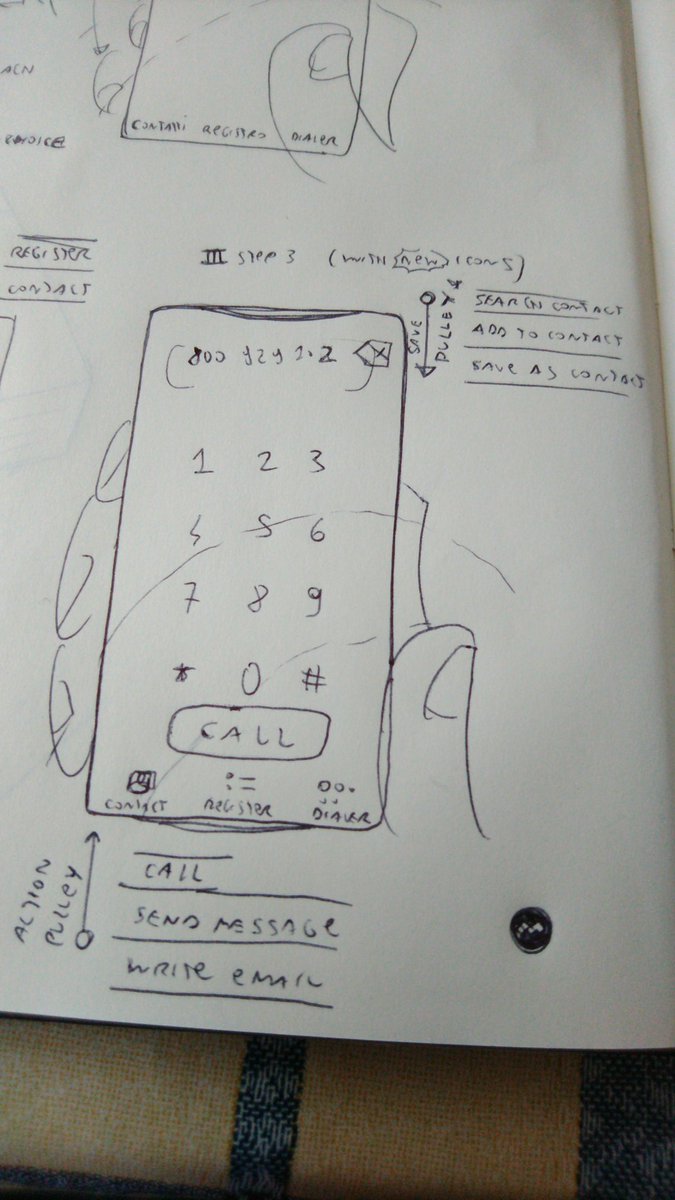 CONTATTI REGISTRO DIALER
REGISTER
CONTACT
III STEP 3 (WITH NEW ICONS)
SAVE PULLEY
SEARCH CONTACT
ADD TO CONTACT
SAVE AS CONTACT
800 929 102
1 2 3
4 5 6
7 8 9
* 0 #
CALL
CONTACT REGISTER DIALER
ACTION PULLEY
CALL
SEND MESSAGE
WRITE EMAIL